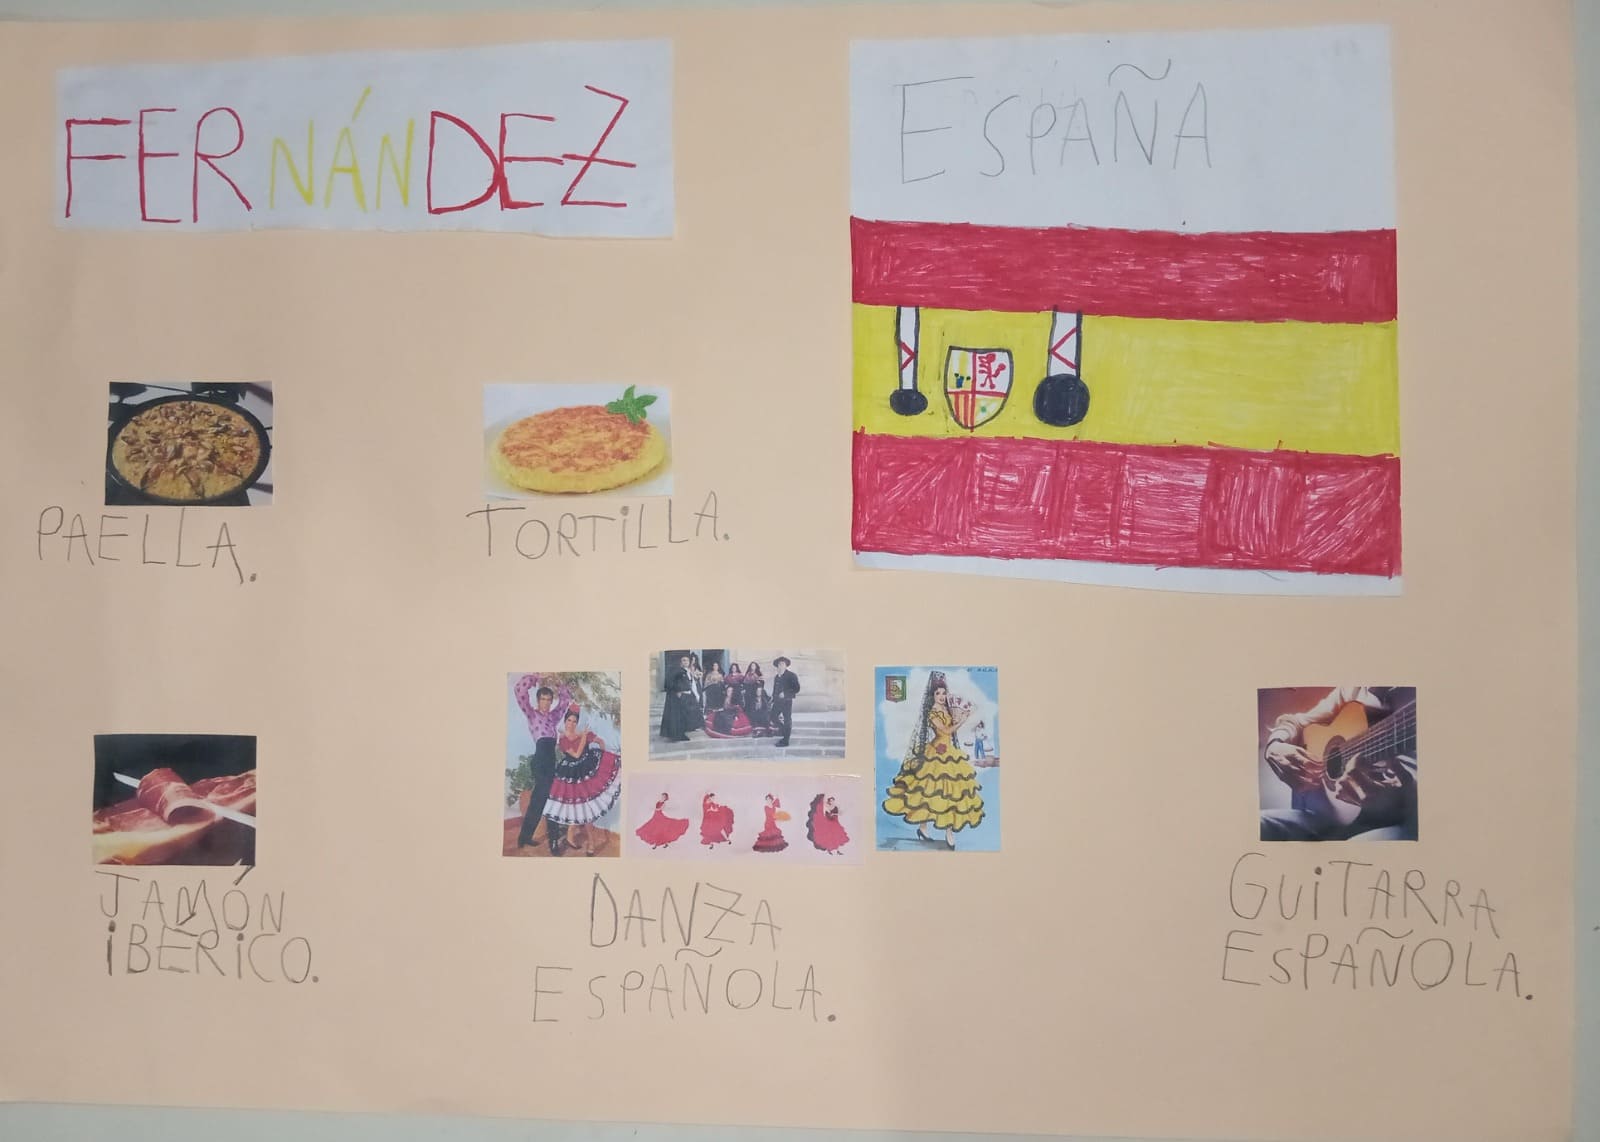 FERNÁNDEZ
ESPAÑA
PAELLA.
TORTiLLA.
JAMÓN
iBÉRiCO.
DANZA
ESPAÑOLA.
GUiTARRA
ESPAÑOLA.